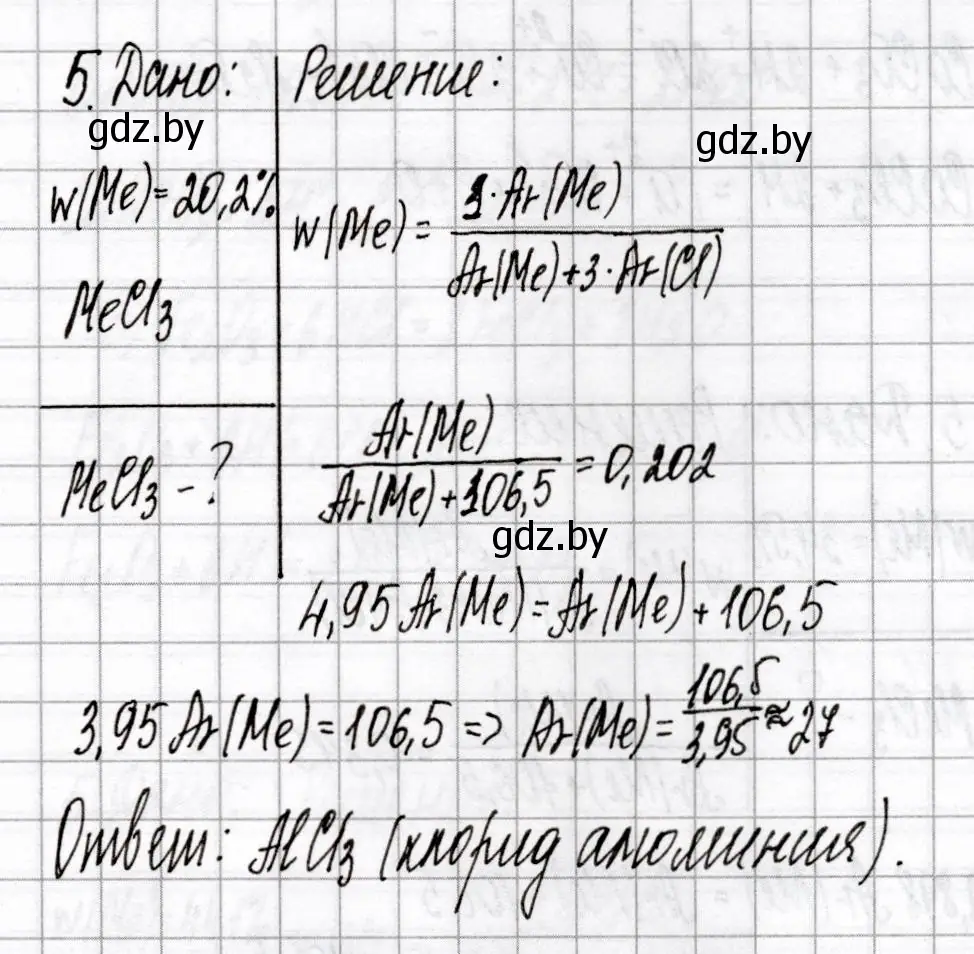 5. Дано:
gdz.by
w(Me)=20,2%
MeCl₃
MeCl₃ - ?
Решение:
gdz.by
w(Me) = 1·Ar(Me) / Ar(Me)+3·Ar(Cl)
Ar(Me) / Ar(Me)+106,5 = 0,202
gdz.by
4,95 Ar(Me) = Ar(Me) + 106,5
3,95 Ar(Me) = 106,5 => Ar(Me) = 106,5 / 3,95 ≈ 27
Ответ: AlCl₃ (хлорид алюминия).